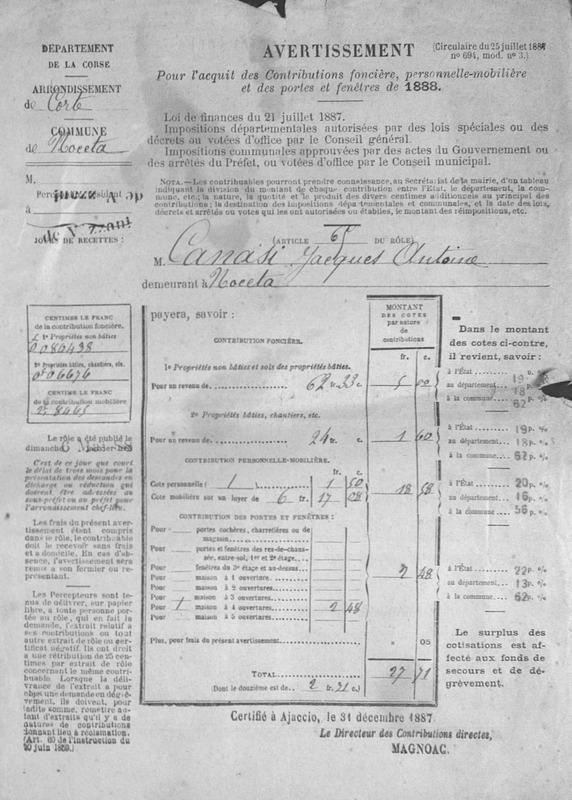 DÉPARTEMENT
DE LA CORSE
ARRONDISSEMENT
de Corte
COMMUNE
de Noceta
M.
à
JOURS DE RECETTES :
AVERTISSEMENT
(Circulaire du 25 juillet 1887
nº 694, mod. nº 3.)
Pour l'acquit des Contributions foncière, personnelle-mobilière
et des portes et fenêtres de 1888.
Loi de finances du 21 juillet 1887.
Impositions départementales autorisées par des lois spéciales ou des
décrets ou votées d'office par le Conseil général.
Impositions communales approuvées par des actes du Gouvernement ou
des arrêtés du Préfet, ou votées d'office par le Conseil municipal.
NOTA. — Les contribuables pourront prendre connaissance, au Secrétariat de la mairie, d'un tableau
indiquant la division du montant de chaque contribution entre l'État, le département, la com-
mune, etc.; la nature, la quotité et le produit des divers centimes additionnels au principal des
contributions; la destination des impositions départementales et communales, et la date des lois,
décrets et arrêtés ou votes qui les ont autorisées ou établies, le montant des réimpositions, etc.
(ARTICLE DU RÔLE)
M. Canasi Jacques Antoine
demeurant à Noceta
CENTIMES LE FRANC
de la contribution foncière.
1º Propriétés non bâties
0,080438
2º Propriétés bâties, chantiers, etc.
0,06676
CENTIME LE FRANC
de la contribution mobilière
Le rôle a été publié le
dimanche
C'est de ce jour que court
le délai de trois mois pour la
présentation des demandes en
décharge ou réduction qui
doivent être adressées au
sous-préfet ou au préfet pour
l'arrondissement chef-lieu.
Les frais du présent aver-
tissement étant compris
dans le rôle, le contribuable
doit le recevoir sans frais
et à domicile. En cas d'ab-
sence, l'avertissement sera
remis à son fermier ou re-
présentant.
Les Percepteurs sont te-
nus de délivrer, sur papier
libre, à toute personne por-
tée au rôle, qui en fait la
demande, l'extrait relatif à
ses contributions ou tout
autre extrait de rôle ou cer-
tificat négatif. Ils ont droit
à une rétribution de 25 cen-
times par extrait de rôle
concernant le même contri-
buable. Lorsque la déli-
vrance de l'extrait a pour
objet une demande en dégrè-
vement, ils doivent, pour
ladite somme, remettre au-
tant d'extraits qu'il y a de
natures de contributions
donnant lieu à réclamation.
(Art. 60 de l'Instruction du
20 juin 1859.)
payera, savoir :
MONTANT
DES COTES
par nature
de
contributions
fr. c.
CONTRIBUTION FONCIÈRE.
1º Propriétés non bâties et sols des propriétés bâties.
Pour un revenu de 62 fr. 23 c. 5 00
2º Propriétés bâties, chantiers, etc.
Pour un revenu de 24 fr. c. 1 60
CONTRIBUTION PERSONNELLE-MOBILIÈRE.
fr. c.
Cote personnelle ( 1 ) 1 50
Cote mobilière sur un loyer de 6 fr. 17 08
18 58
CONTRIBUTION DES PORTES ET FENÊTRES :
Pour portes cochères, charretières ou de
magasin
Pour portes et fenêtres des rez-de-chaus-
sée, entre-sol, 1er et 2e étage
Pour fenêtres du 3e étage et au-dessus
Pour maison à 1 ouverture
Pour maison à 2 ouvertures
Pour maison à 3 ouvertures
Pour 1 maison à 4 ouvertures 2 48
Pour maison à 5 ouvertures
2 48
Plus, pour frais du présent avertissement » 05
TOTAL 27 71
(Dont le douzième est de 2 fr. 31 c.)
Dans le montant
des cotes ci-contre,
il revient, savoir :
à l'État 19 p. %
au département 18 p. %
à la commune 62 p. %
à l'État 19 p. %
au département 18 p. %
à la commune 62 p. %
à l'État 20 p. %
au département 16 p. %
à la commune 56 p. %
à l'État 22 p. %
au département 13 p. %
à la commune 62 p. %
Le surplus des
cotisations est af-
fecté aux fonds de
secours et de dé-
grèvement.
Certifié à Ajaccio, le 31 décembre 1887.
Le Directeur des Contributions directes,
MAGNOAC.